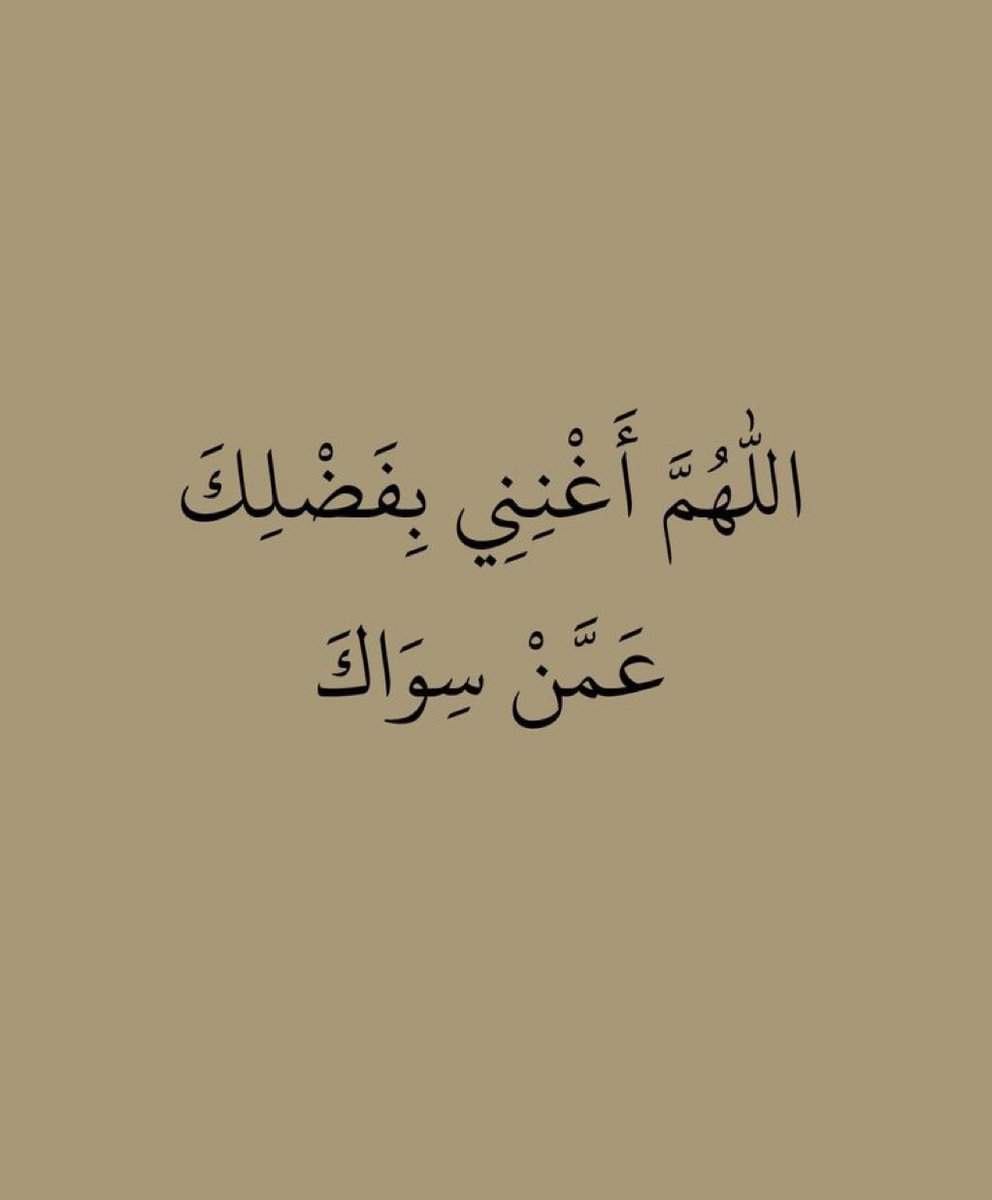 اللّٰهُمَّ أَغْنِنِي بِفَضْلِكَ
عَمَّنْ سِوَاكَ